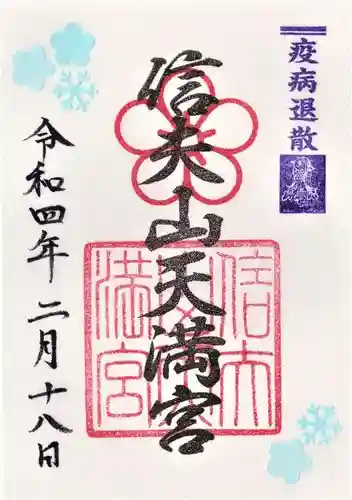 疫病退散
信夫山天満宮
令和四年二月十八日